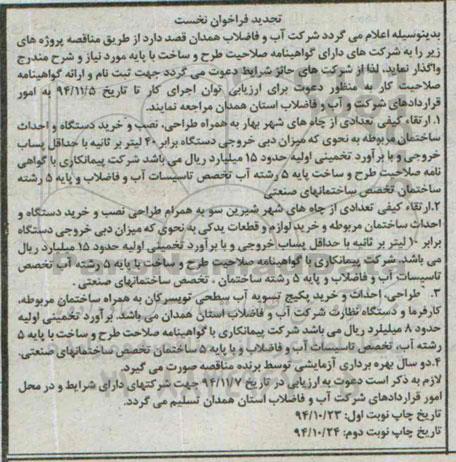 تجدید فراخوان نخست
بدینوسیله اعلام می گردد شرکت آب و فاضلاب همدان قصد دارد از طریق مناقصه پروژه های
زیر را به شرکت های دارای گواهینامه صلاحیت طرح و ساخت با پایه مورد نیاز و شرح مندرج
واگذار نماید. لذا از شرکت های حائز شرایط دعوت می گردد جهت ثبت نام و ارائه گواهینامه
صلاحیت کار به منظور دعوت برای ارزیابی توان اجرای کار تا تاریخ ۹۴/۱۱/۵ به امور
قراردادهای شرکت و آب و فاضلاب استان همدان مراجعه نمایند.
۱. ارتقاء کیفی تعدادی از چاه های شهر بهار به همراه طراحی، نصب و خرید دستگاه و احداث
ساختمان مربوطه به نحوی که میزان دبی خروجی دستگاه برابر ۴۰ لیتر بر ثانیه با حداقل پساب
خروجی و با برآورد تخمینی اولیه حدود ۱۵ میلیارد ریال می باشد شرکت پیمانکاری با گواهی
نامه صلاحیت طرح و ساخت پایه ۵ رشته آب تخصص تاسیسات آب و فاضلاب و پایه ۵ رشته
ساختمان تخصص ساختمانهای صنعتی
۲. ارتقاء کیفی تعدادی از چاه های شهر شیرین سو به همرام طراحی نصب و خرید دستگاه و
احداث ساختمان مربوطه و خرید لوازم و قطعات یدکی به نحوی که میزان دبی خروجی دستگاه
برابر ۱۰ لیتر بر ثانیه با حداقل پساب خروجی و با برآورد تخمینی اولیه حدود ۱۵ میلیارد ریال
می باشد. شرکت پیمانکاری با گواهینامه صلاحیت طرح و ساخت با پایه ۵ رشته آب تخصص
تاسیسات آب و فاضلاب و پایه ۵ رشته ساختمان ، تخصص ساختمانهای صنعتی .
۳. طراحی، احداث و خرید پکیج تسویه آب سطحی تویسرکان به همراه ساختمان مربوطه،
کارفرما و دستگاه نظارت شرکت آب و فاضلاب استان همدان می باشد. برآورد تخمینی اولیه
حدود ۸ میلیلرد ریال می باشد شرکت پیمانکاری با گواهینامه صلاحت طرح و ساخت با پایه ۵
رشته آب، تخصص تاسیسات آب و فاضلاب و با پایه ۵ ساختمان تخصص ساختمانهای صنعتی.
۴. دو سال بهره برداری آزمایشی توسط برنده مناقصه صورت می گیرد.
لازم به ذکر است دعوت به ارزیابی در تاریخ ۹۴/۱۱/۷ جهت شرکتهای دارای شرایط و در محل
امور قراردادهای شرکت آب و فاضلاب استان همدان تسلیم می گردد.
تاریخ چاپ نوبت اول: ۹۴/۱۰/۲۳
تاریخ چاپ نوبت دوم: ۹۴/۱۰/۲۴